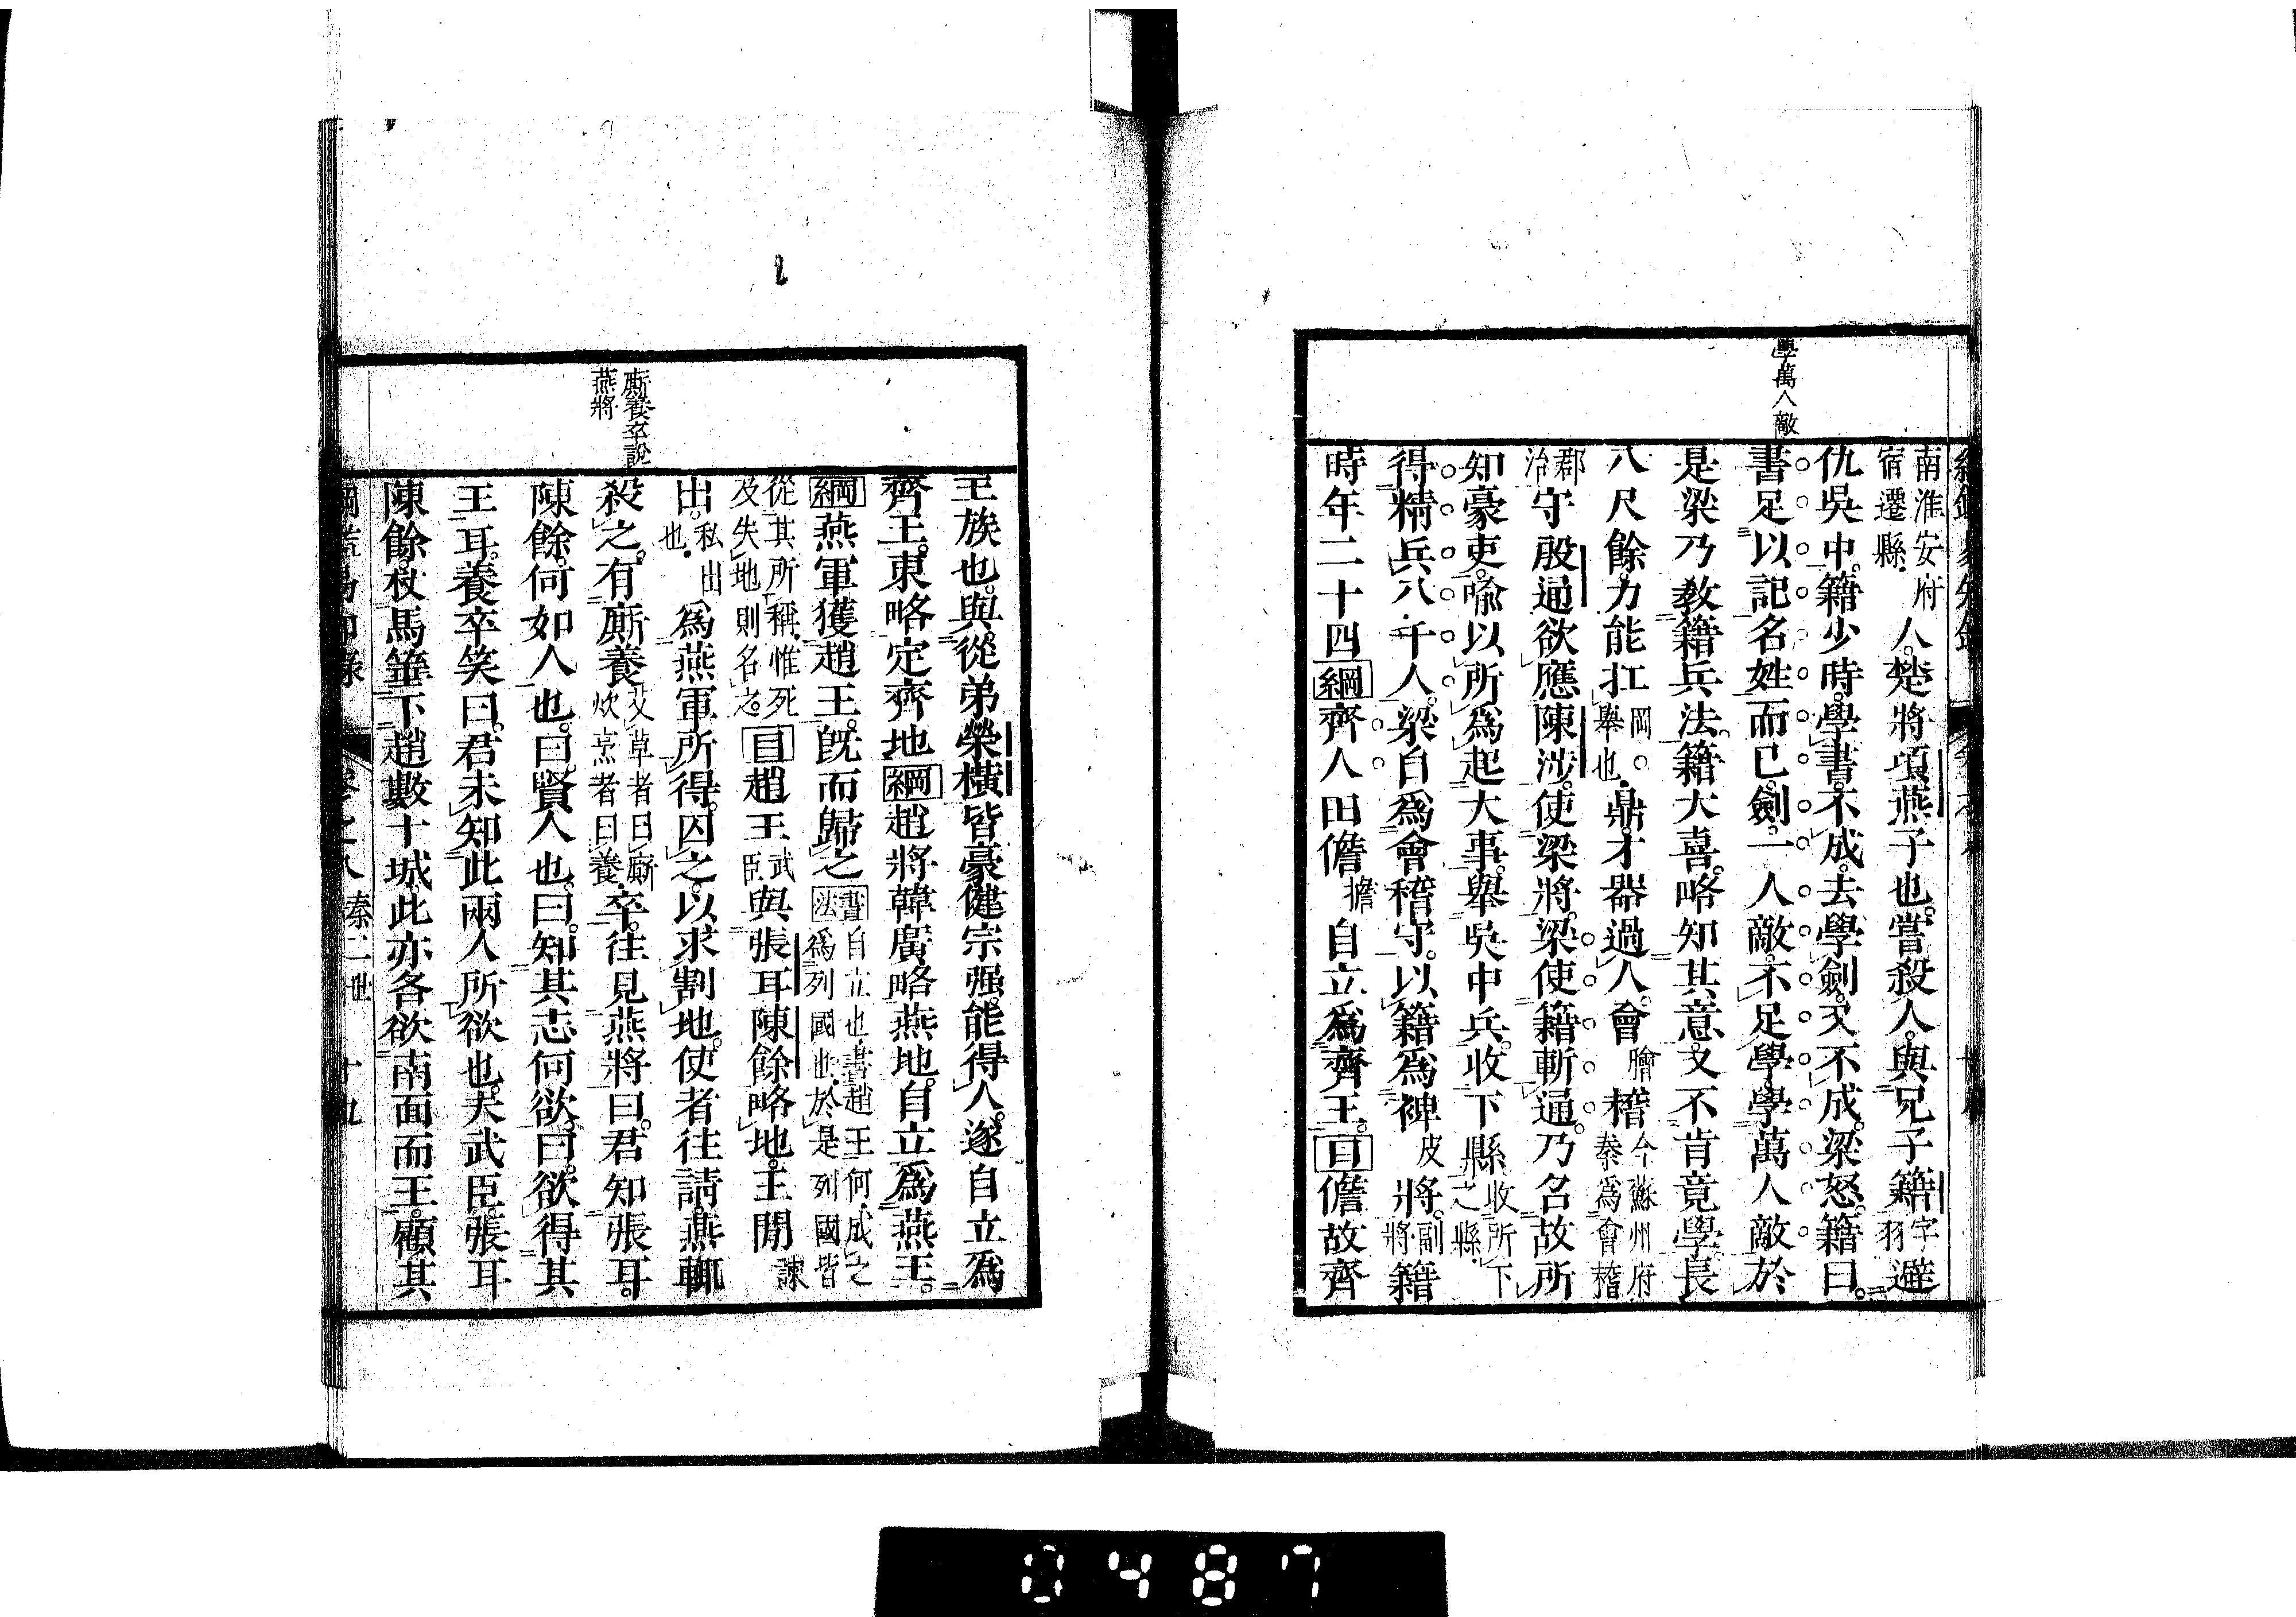 學萬人敵
南淮安府宿遷縣人楚將項燕子也嘗殺人與兄子籍字羽避
仇吳中籍少時學書不成去學劍又不成梁怒籍曰
書足以記名姓而已劍一人敵不足學學萬人敵於
是梁乃教籍兵法籍大喜略知其意又不肯竟學長
八尺餘力能扛岡舉也鼎才器過人會膾稽今蘇州府秦爲會稽
郡治守殷通欲應陳涉使梁將梁使籍斬通乃召故所
知豪吏喻以所爲起大事舉吳中兵收下縣收所下之縣
得精兵八千人梁自爲會稽守以籍爲裨皮將副將籍
時年二十四綱齊人田儋擔自立爲齊王目儋故齊
王族也與從弟榮橫皆豪健宗强能得人遂自立爲
齊王東略定齊地綱趙將韓廣略燕地自立爲燕王
綱燕軍獲趙王旣而歸之書法自立也書趙王何成之爲列國也於是列國皆
從其所稱惟死及失地則名之目趙王武臣與張耳陳餘略地王閒諫
出私出也爲燕軍所得囚之以求割地使者往請燕輒
殺之有廝養艾草者曰廝炊烹者曰養卒往見燕將曰君知張耳
陳餘何如人也曰賢人也曰知其志何欲曰欲得其
王耳養卒笑曰君未知此兩人所欲也夫武臣張耳
陳餘杖馬箠下趙數十城此亦各欲南面而王顧其
廝養卒說
燕將
卷之八 秦二世 十九
0487